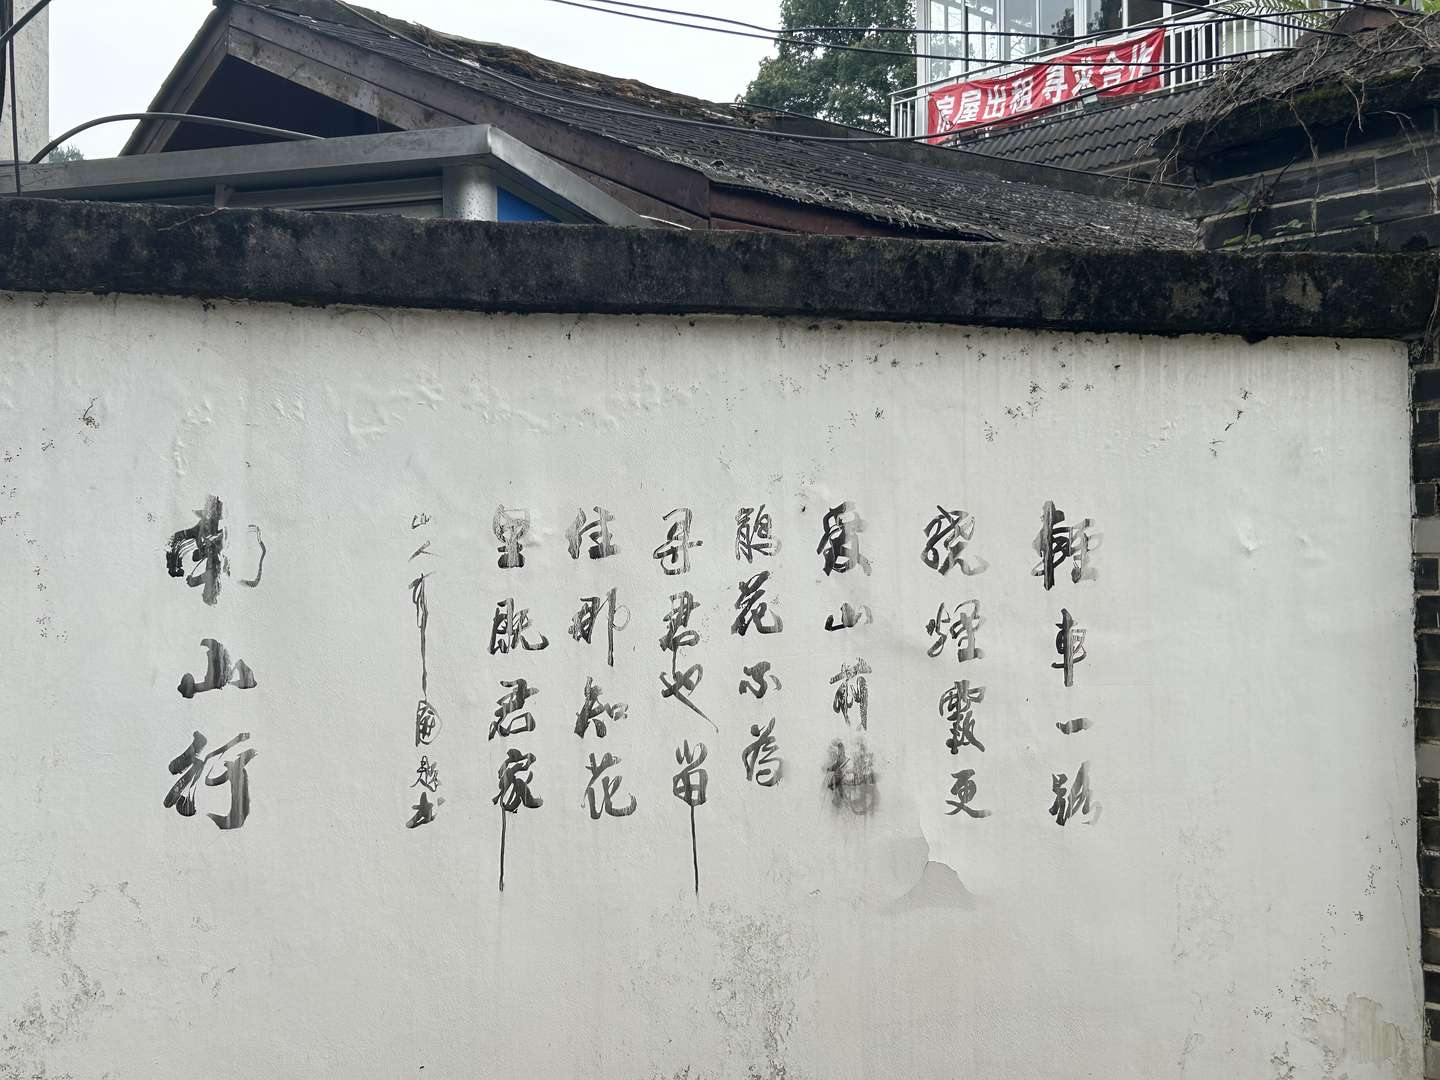 房屋出租 寻求合作
輕車一路
繞煙霞更
愛山前
鵑花不為
尋君也留
住那知花
里既君家
山人
題
南山行